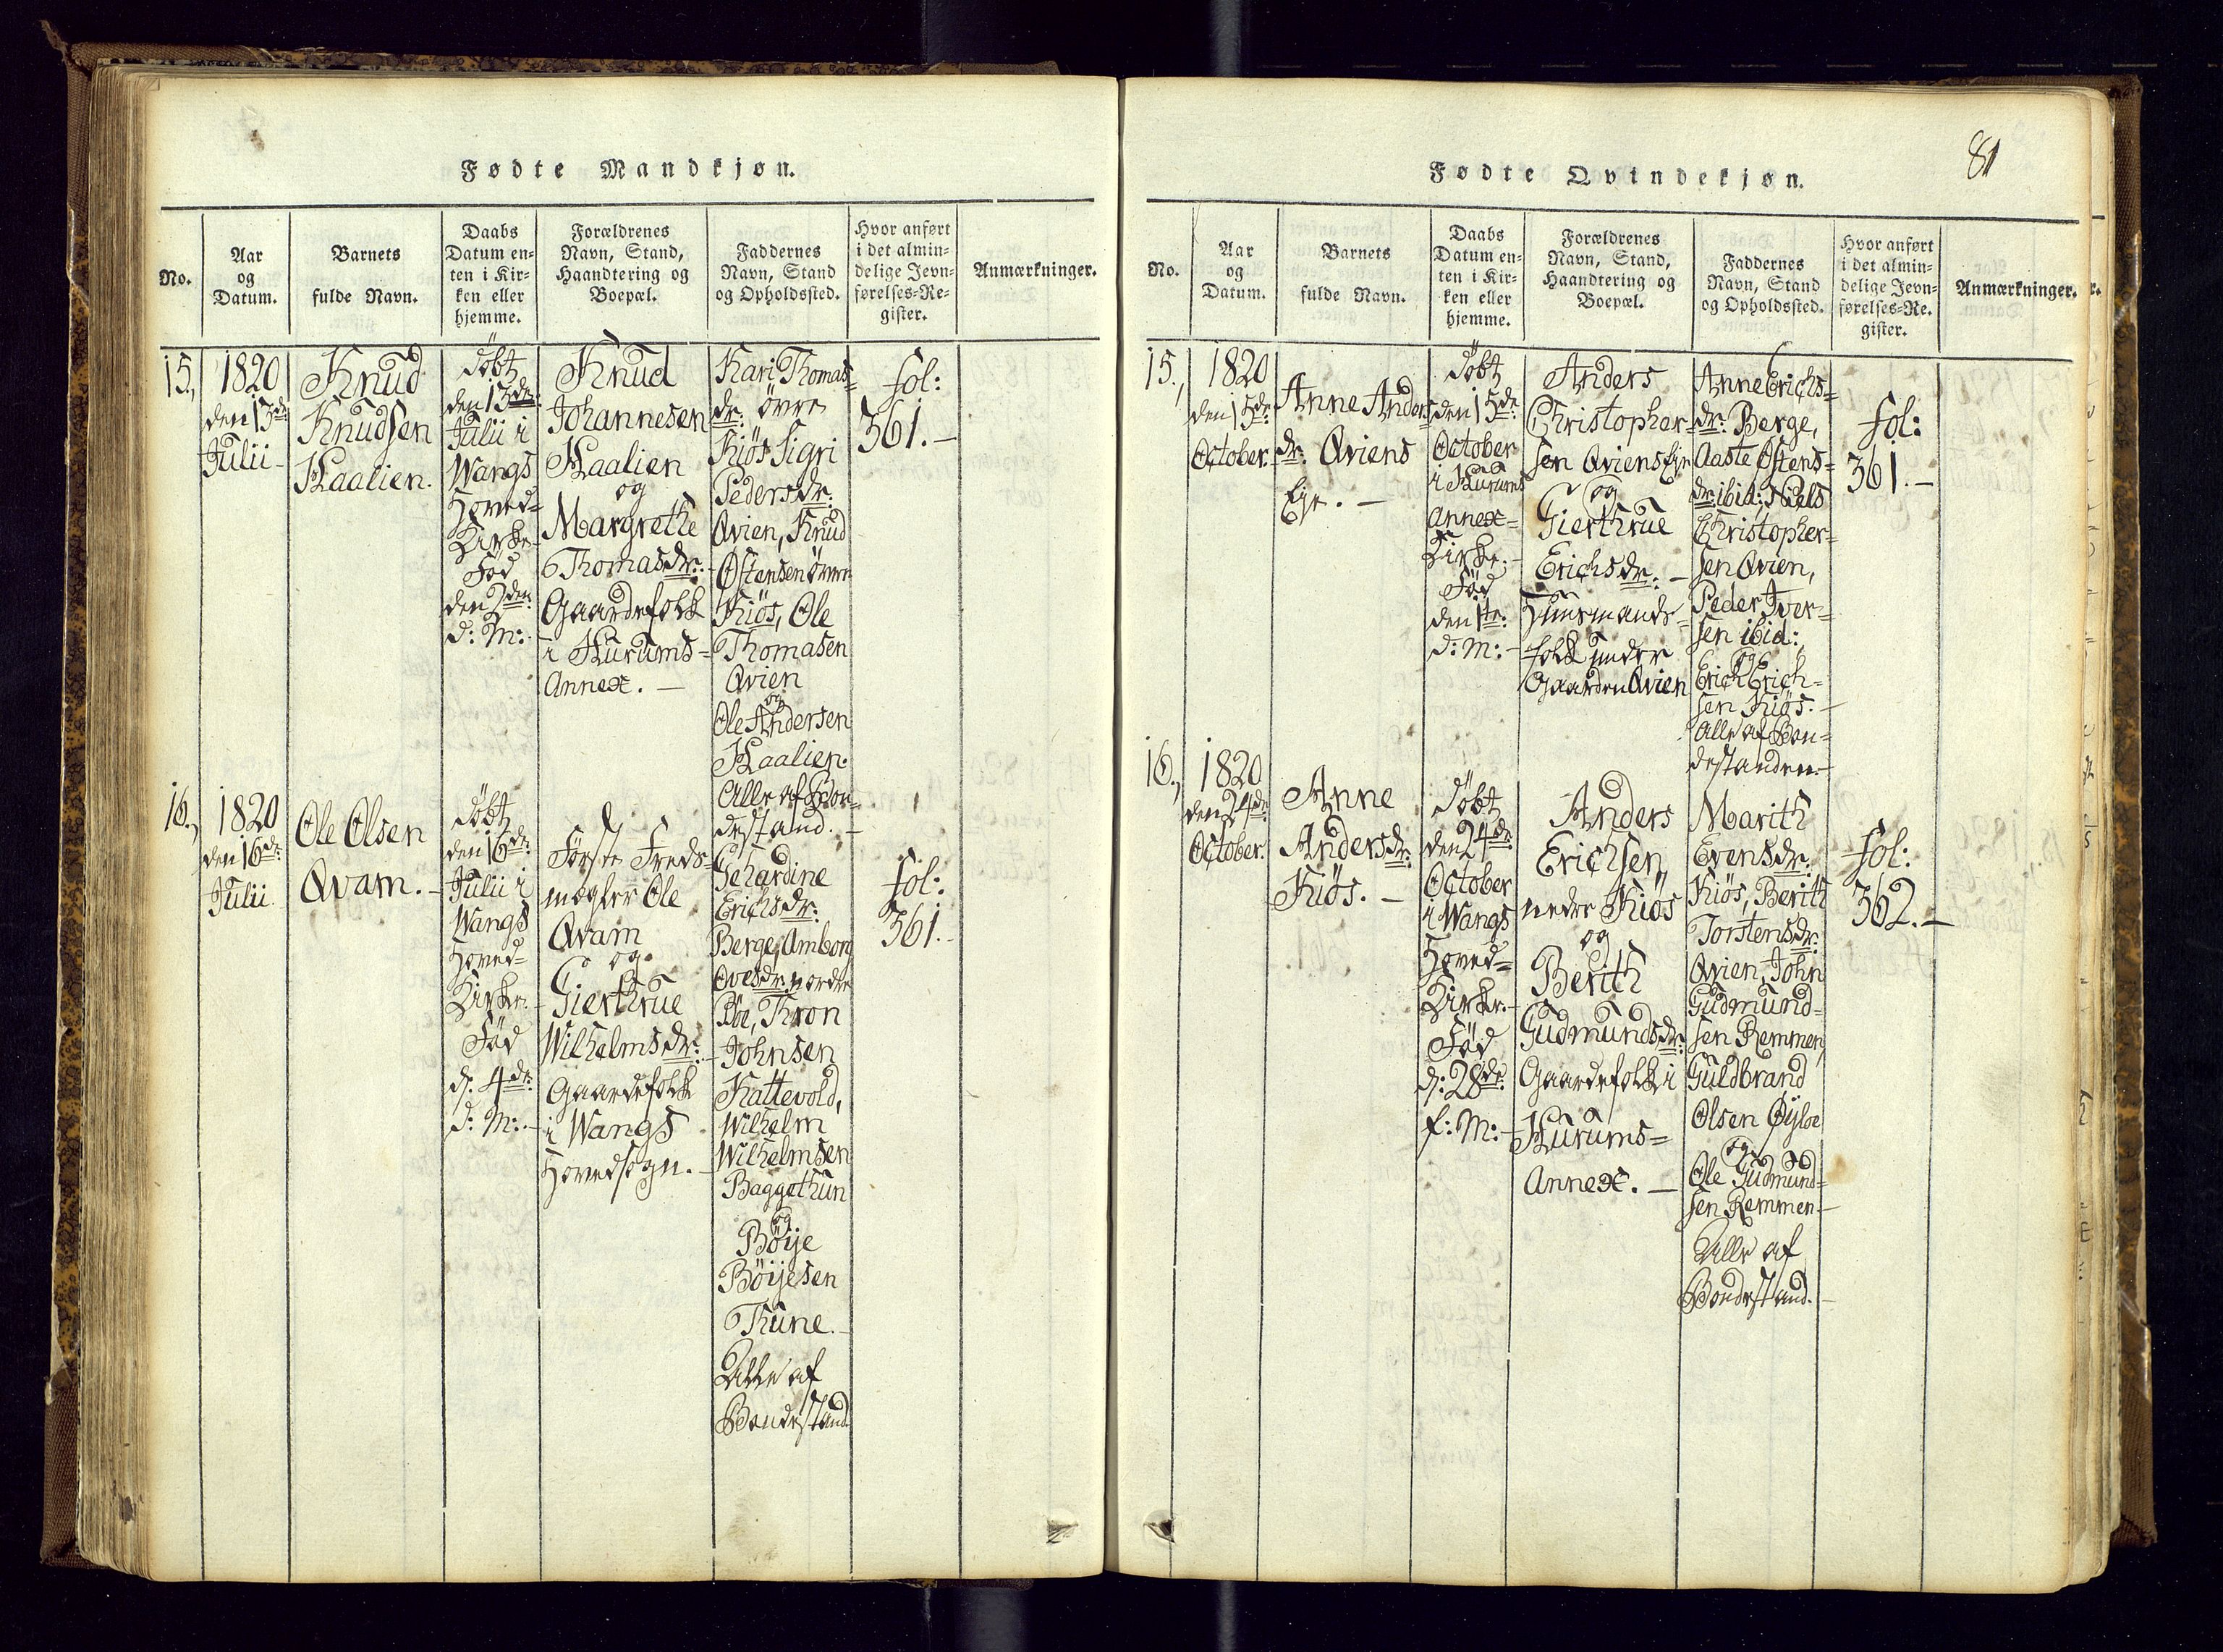 Fødte Mandkjøn.
No.
Aar
og
Datum.
Barnets
fulde Navn.
Daabs
Datum en-
ten i Kir-
ken eller
hjemme.
Forældrenes
Navn, Stand,
Haandtering og
Boepæl.
Faddernes
Navn, Stand
og Opholdssted.
Hvor anført
i det almin-
delige Jevn-
førelses-Re-
gister.
Anmærkninger.
15,
1820
den 13de
Julii
Knud
Knudsen
Haalien.
döbt
den 13de
Julii i
Wangs
Hoved=
Kirke
Föd
den 2den
d: M:
Knud
Johannesen
Haalien
og
Margrethe
Thomasdr:
Gaardefolk
i Hurums=
Annex. –
Kari Thomas=
dr: övre
Kiös Sigri
Pedersdr:
Qvien, Knud
Østensen övre
Kiös, Ole
Thomasen
Qvien
og
Ole Andersen
Haalien.
Alle af Bon=
destand. –
fol:
361. –
16.,
1820
den 16de
Julii
Ole Olsen
Qvam. –
döbt
den 16de
Julii i
Wangs
Hoved=
Kirke.
Föd
d: 4de
d: M:
Förste Freds=
mægler Ole
Qvam
og
Gierthrue
Wilhelmsdr:
Gaardefolk
i Wangs
Hovedsogn. –
Gehardine
Erichsdr:
Berge, Amborg
Ovesdr: nordre
Thron
Johnsen
Kattevold,
Wilhelm
Wilhelmsen
Baggethun
og
Böije
Böijesen
Thune. –
Alle af
Bondestand
fol:
361. –
81
Fødte Qvindekjøn.
No.
Aar
og
Datum.
Barnets
fulde Navn.
Daabs
Datum en-
ten i Kir-
ken eller
hjemme.
Forældrenes
Navn, Stand,
Haandtering og
Boepæl.
Faddernes
Navn, Stand
og Opholdssted.
Hvor anført
i det almin-
delige Jevn-
førelses-Re-
gister.
Anmærkninger.
15.,
1820
den 15de
October.
Anne Anders
dr: Qviens
Eje. –
döbt
den 15de
October
i Hurums
Annex=
Kirke.
Föd
den 1te
d: M: –
Anders
Christopher=
sen Qviens Eje
og
Gierthrue
Erichsdr: –
Huusmands=
folk under
Gaarden Qvien
Anne Erichs=
dr: Berge,
Aaste Østens=
dr: ibid: Niels
Christopher=
sen Qvien,
Peder Iver=
sen ibid:
og
Erich Erich=
sen Kiös. –
Alle af Bon=
destanden. –
fol:
361. –
16.,
1820
den 24de
October.
Anne
Andersdr:
Kiös. –
döbt
den 24de
October
i Wangs
Hoved=
Kirke. –
Föd
d: 28de
f: M: –
Anders
Erichsen,
nedre Kiös
og
Berith
Gudmundsdr:
Gaardefolk i
Hurums=
Annex. –
Marith
Evensdr:
Kiös, Berith
Torstensdr:
Qvien, John
Gudmund=
sen Remmen,
Guldbrand
Olsen Øyloe
og
Ole Gudmund=
sen Remmen –
Alle af
Bondestand. –
fol:
362. –